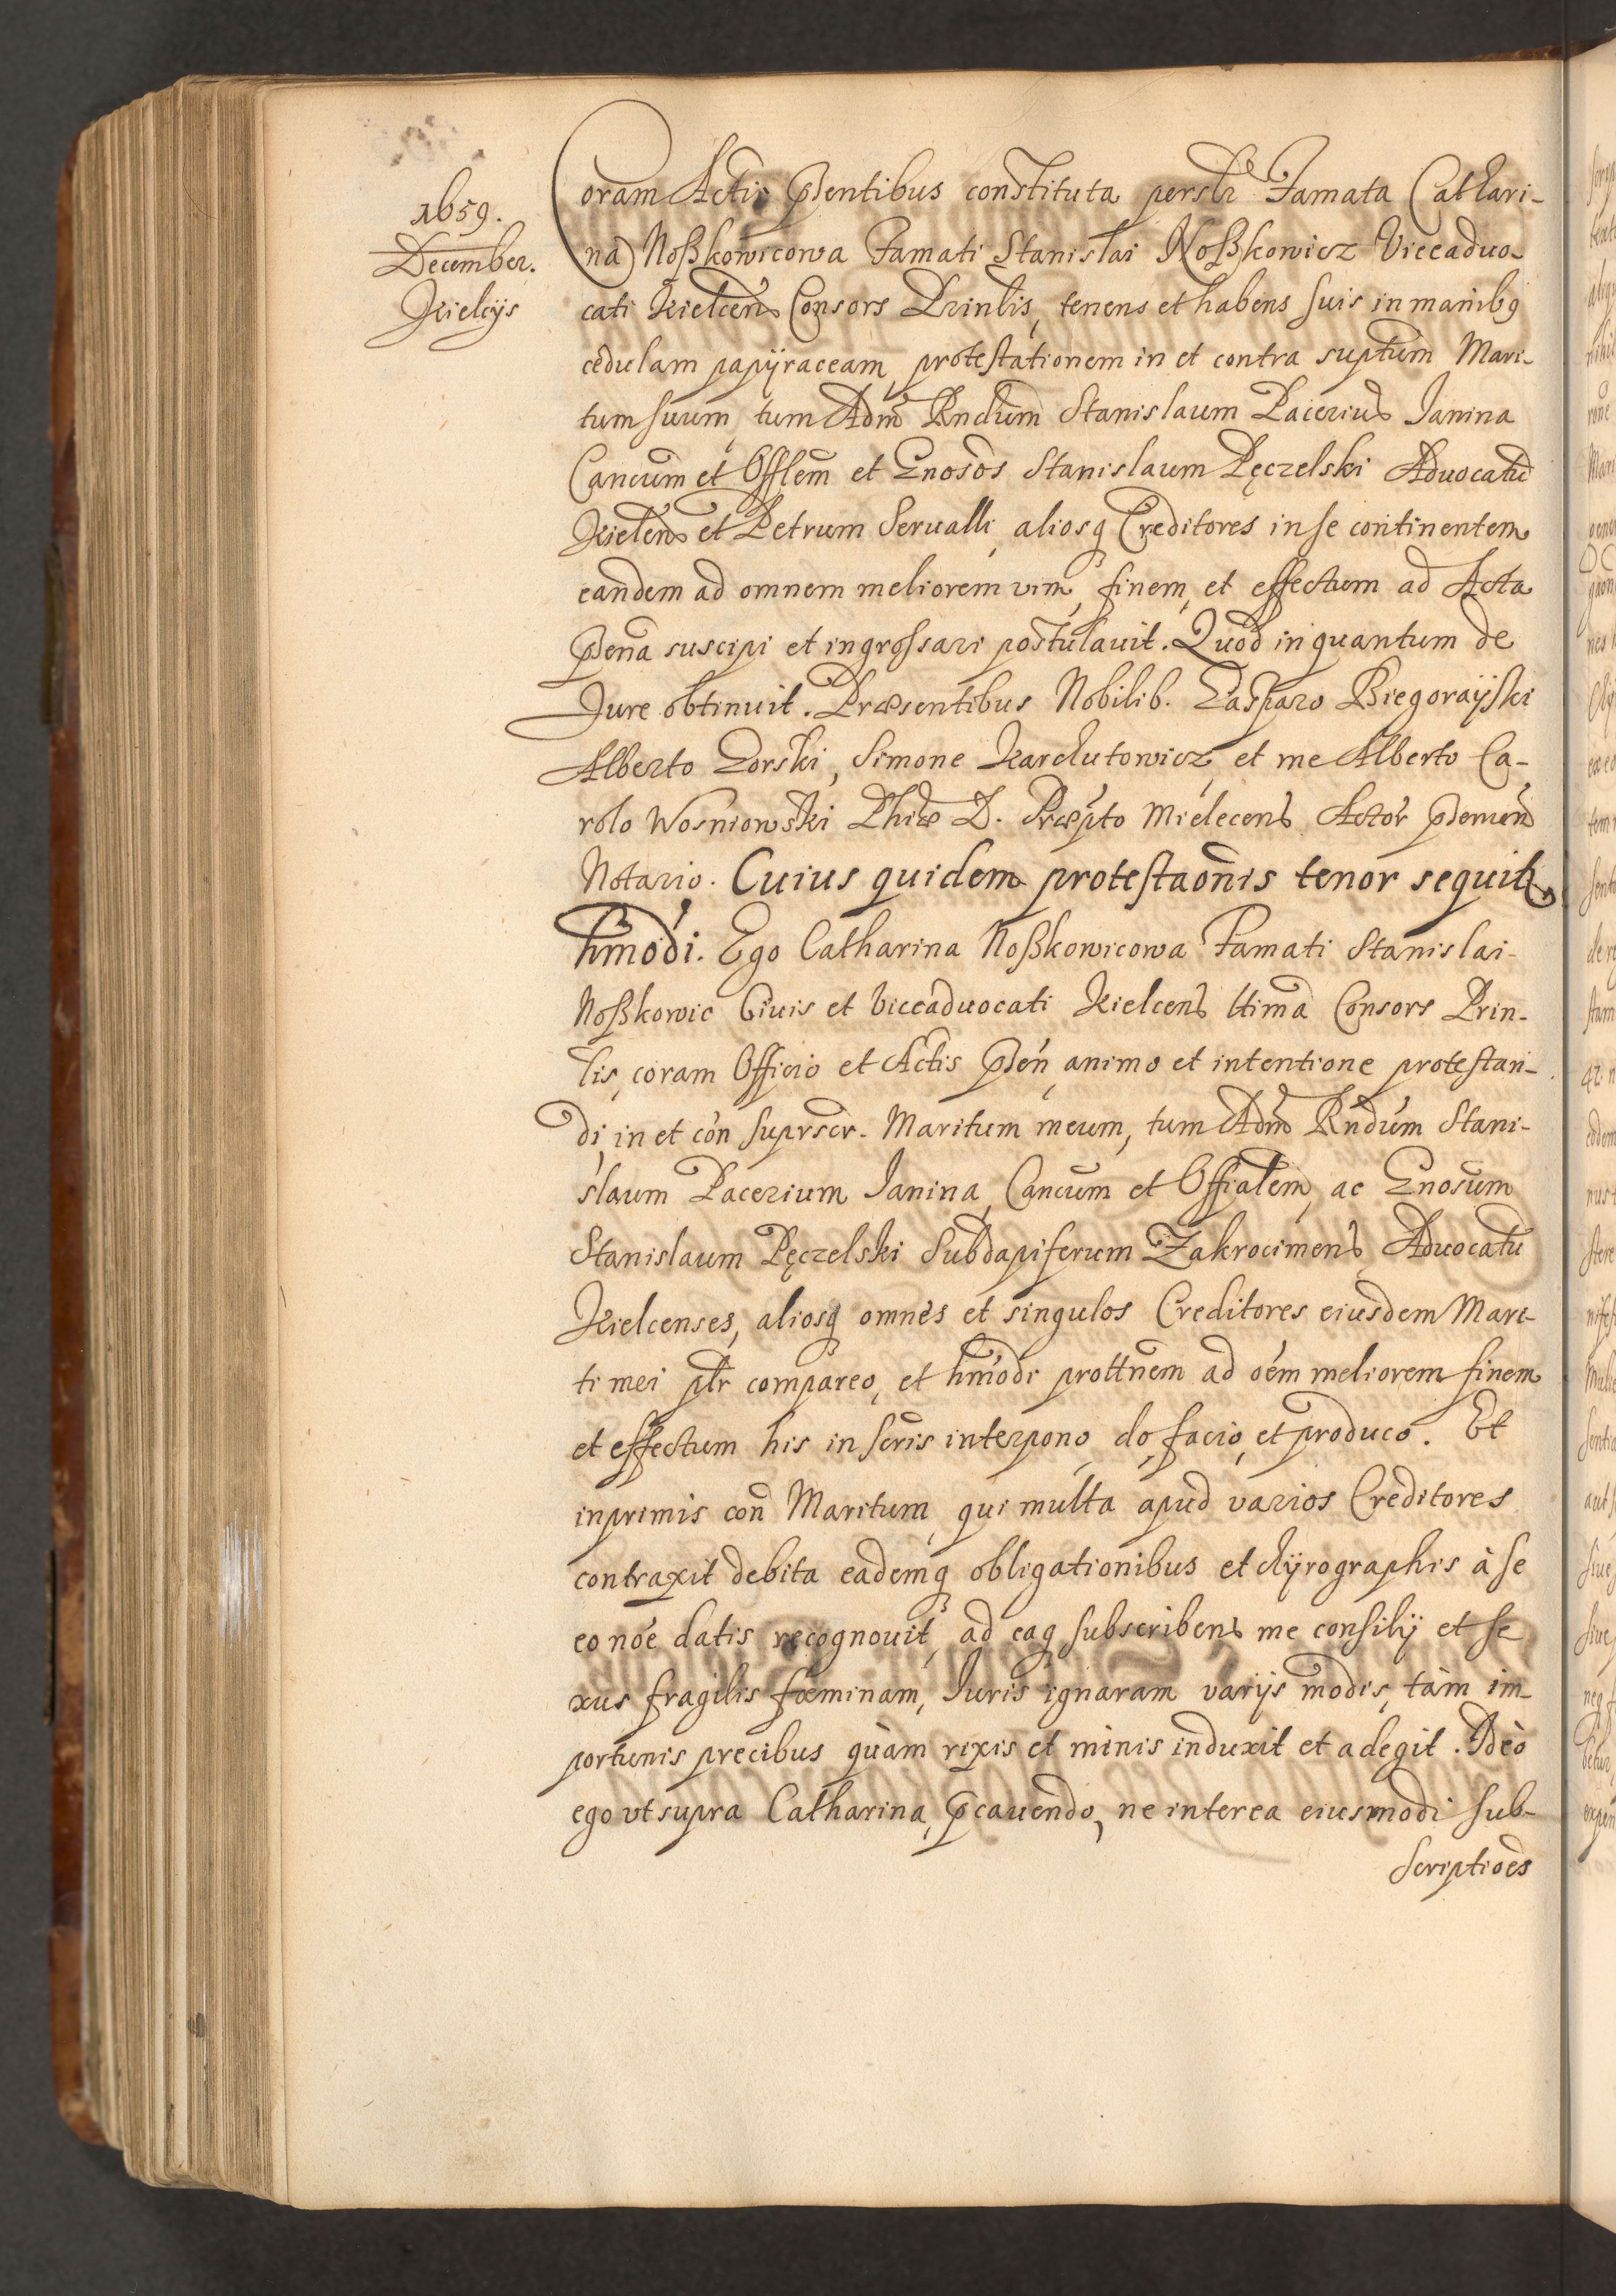 1659.
December.
Kielcijs
Coram Actis p̄sentibus constituta persl̄r Famata Cathari-
na Noßkowicowa Famati Stanislai Noßkowicz Viceaduo-
cati Kielcen̄ Consors Prin̄lis, tenens et habens suis in manibq
cedulam papÿraceam, protestationem in et contra sup̄tum Mari-
tum suum, tum Adm̄ Rn̄dum Stanislaum Pacerius Ianina
Cancum̄ et Offlem̄ et Gnosos̄ Stanislaum Pęczelski Aduocatū
Kielen̄ et Petrum Serualli, aliosq Creditores in se continentem
eandem ad omnem meliorem vim, finem, et effectum ad Acta
p̄sen̄a suscipi et ingrossari postulauit. Quod inquantum de
Jure obtinuit. Præsentibus Nobilib. Gasparo Biegorayski
Alberto Gorski, Simone Karchutowicz, et me Alberto Ca-
rolo Wosniowski Phiæ D. Præpto Mielecens Actor p̄semen̄
Notario. Cuius quidem protestaōnis tenor sequitr
hmōdi. Ego Catharina Noßkowicowa Famati Stanislai
Noßkowic Ciuis et Viceaduocati Kielcens ltima Consors Prin-
lis, coram Officio et Actis p̄sen̄, animo et intentione protestan-
di, in et con̄ suprscr. Maritum meum, tum Adm̄ Rn̄dum Stani-
slaum Pacerium Ianina, Cancum̄ et Offialem̄, ac Gnosum̄
Stanislaum Pęczelski Subdapiferum Zakrocimens, Aduocatū
Kielcenses, aliosq omnes et singulos Creditores eiusdem Mari-
ti mei pl̄r compareo, et hmōdi prottn̄em ad oem̄ meliorem finem
et effectum his in scris̄ interpono, do, facio, et produco. Et
inprimis con̄ Maritum, qui multa apud varios Creditores
contraxit debita eademq obligationibus et chÿrographis à se
eo noē datis recognouit, ad eaq subscribens me consilij et se
xus fragilis fœminam, Iuris ignaram varijs modis, tàm im-
portunis precibus quàm rixis et minis induxit et adegit. Ideò
ego vt supra Catharina, p̄cauendo, ne interea eiusmodi sub-
scriptioēs